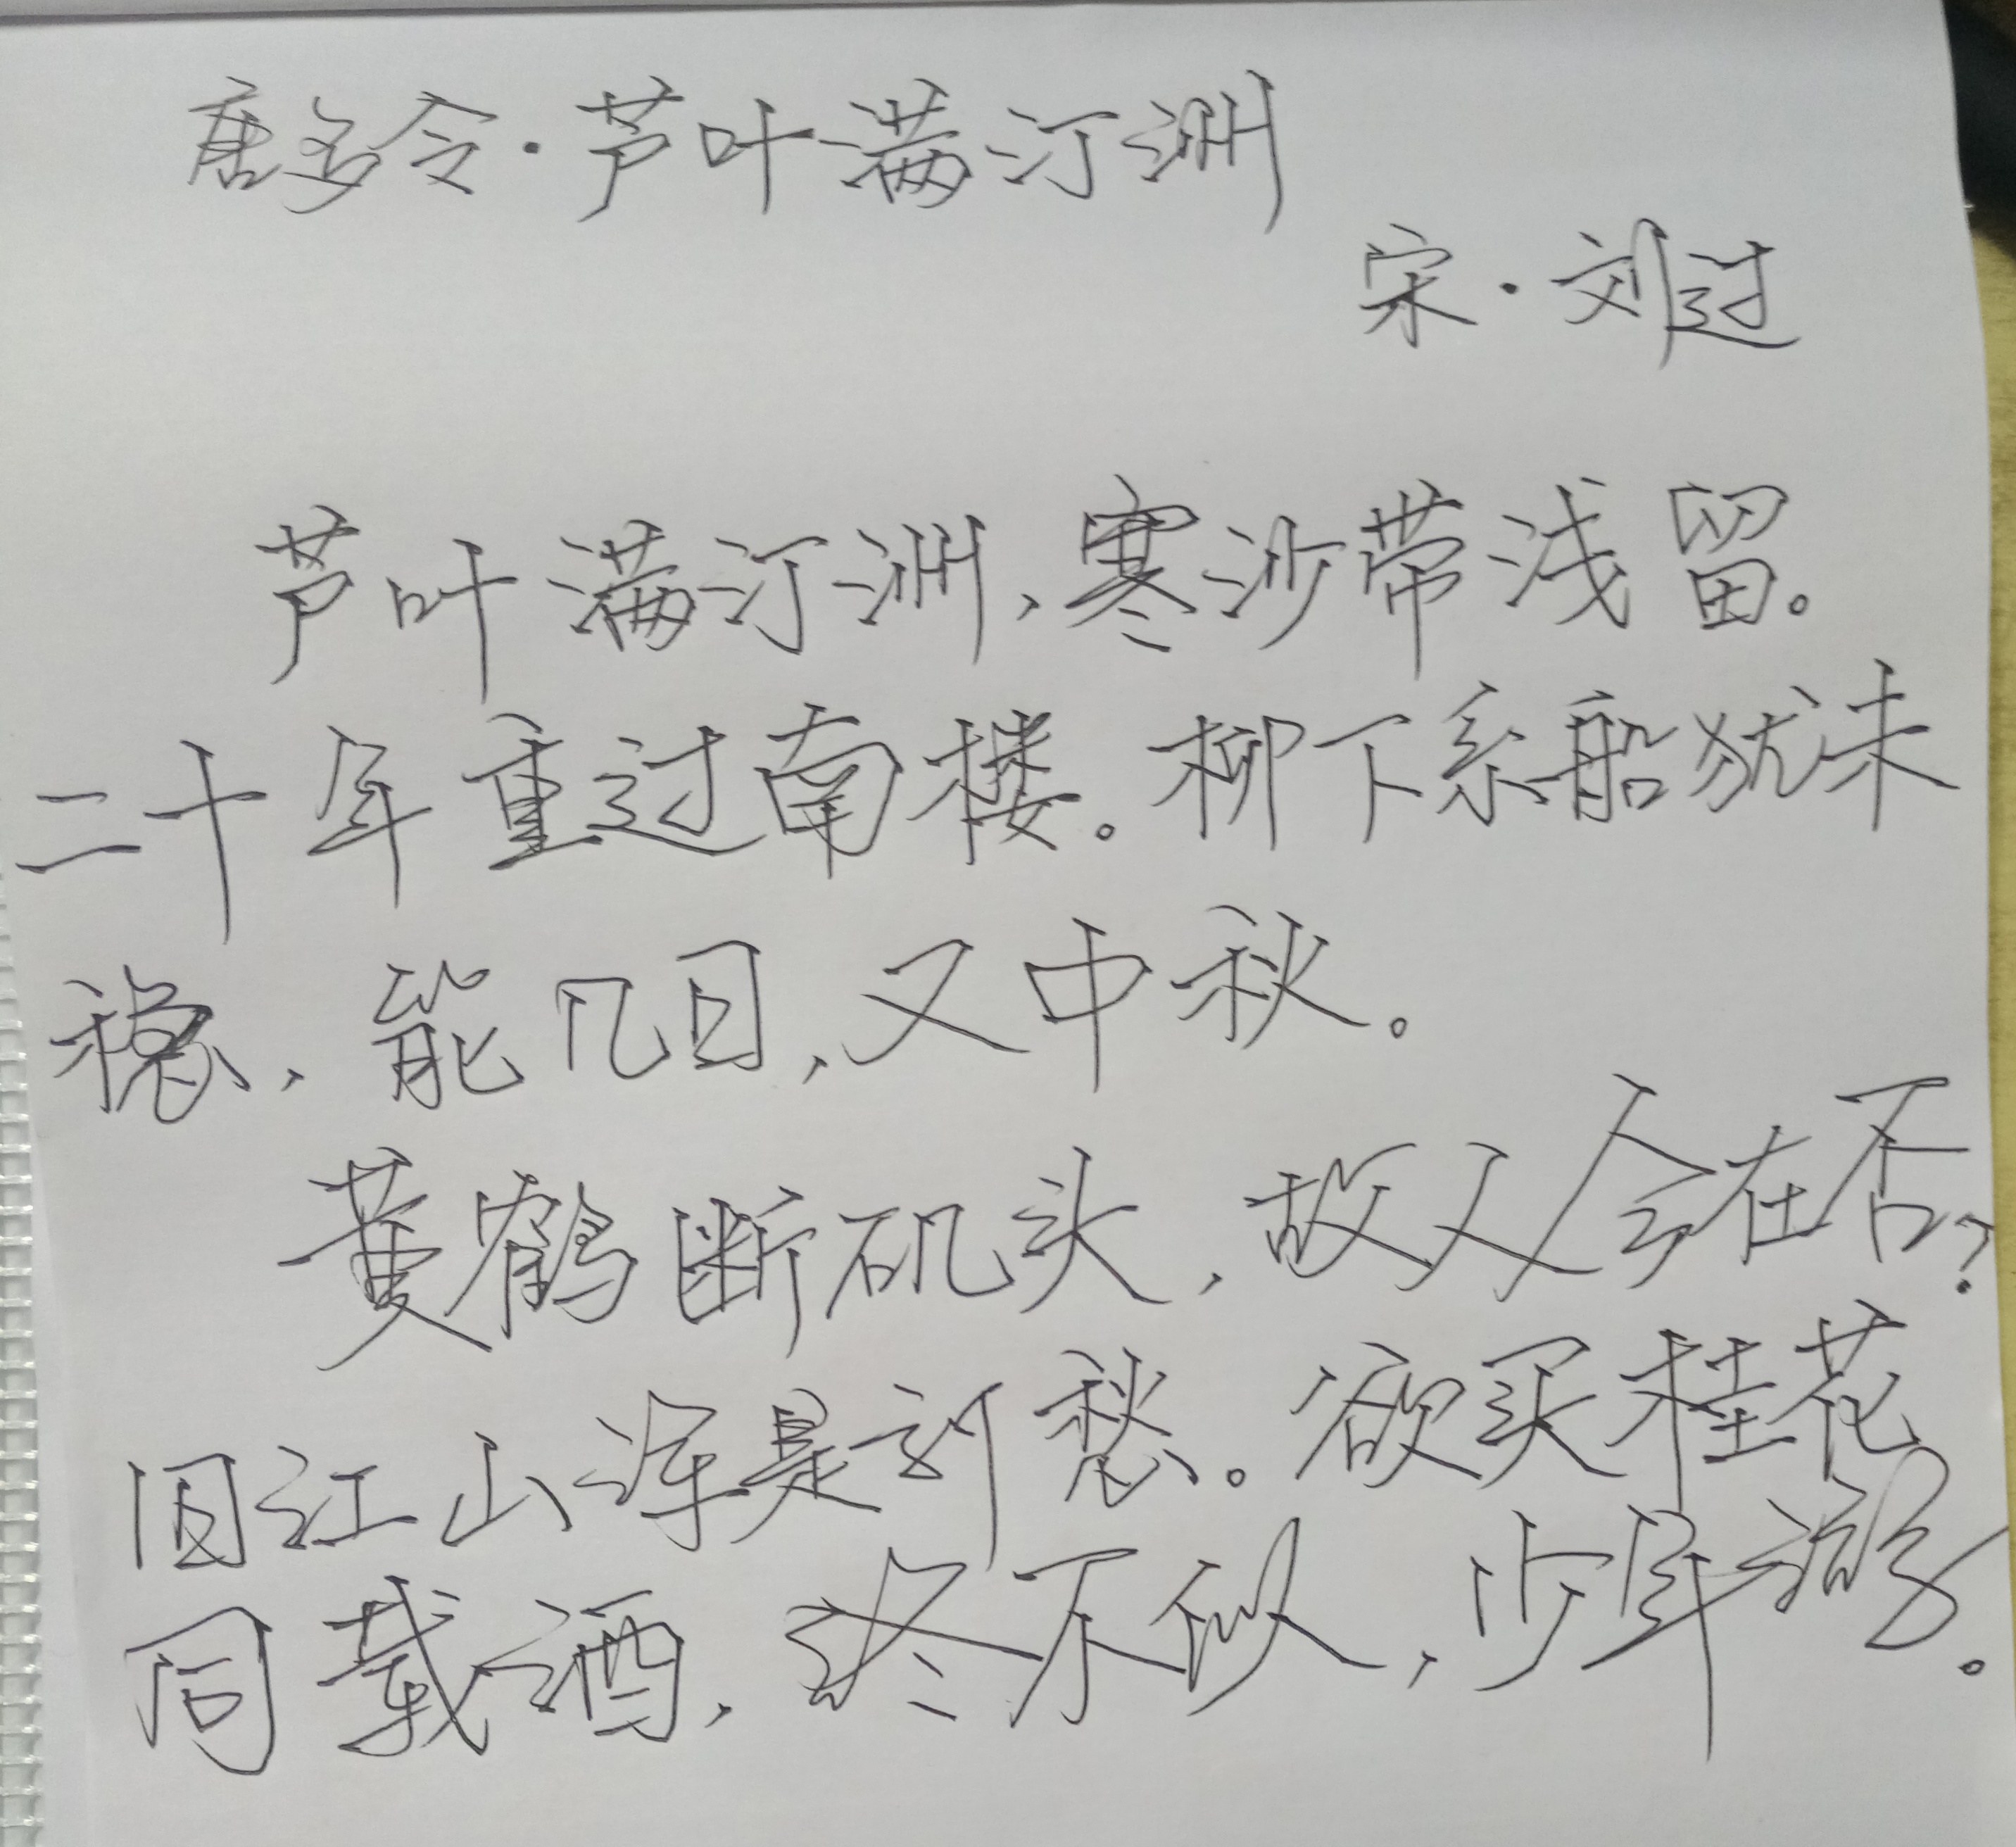 唐多令·芦叶满汀洲
宋·刘过
芦叶满汀洲，寒沙带浅留。
二十年重过南楼。柳下系船犹未
稳，能几日，又中秋。
黄鹤断矶头，故人今在否？
旧江山浑是新愁。欲买桂花
同载酒，终不似，少年游。